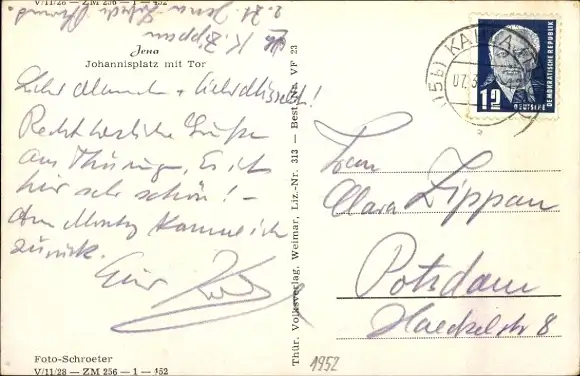 V/11/28 — ZM 256 — 1 — 452
K. Zippan
Jena
Johannisplatz mit Tor
Recht herzliche Grüße
aus Thüringen. Es ist
hier sehr schön! –
Am Montag komme ich
zurück.
Euer
Foto-Schroeter
V/11/28 — ZM 256 — 1 — 452
Thür. Volksverlag, Weimar, Liz.-Nr. 313 — Best.-Nr. VF 23
1952
12
DEUTSCHE
DEMOKRATISCHE REPUBLIK
(15b) KAHLA
07.3
Frau
Clara Zippan
Potsdam
Haeckelstr 8